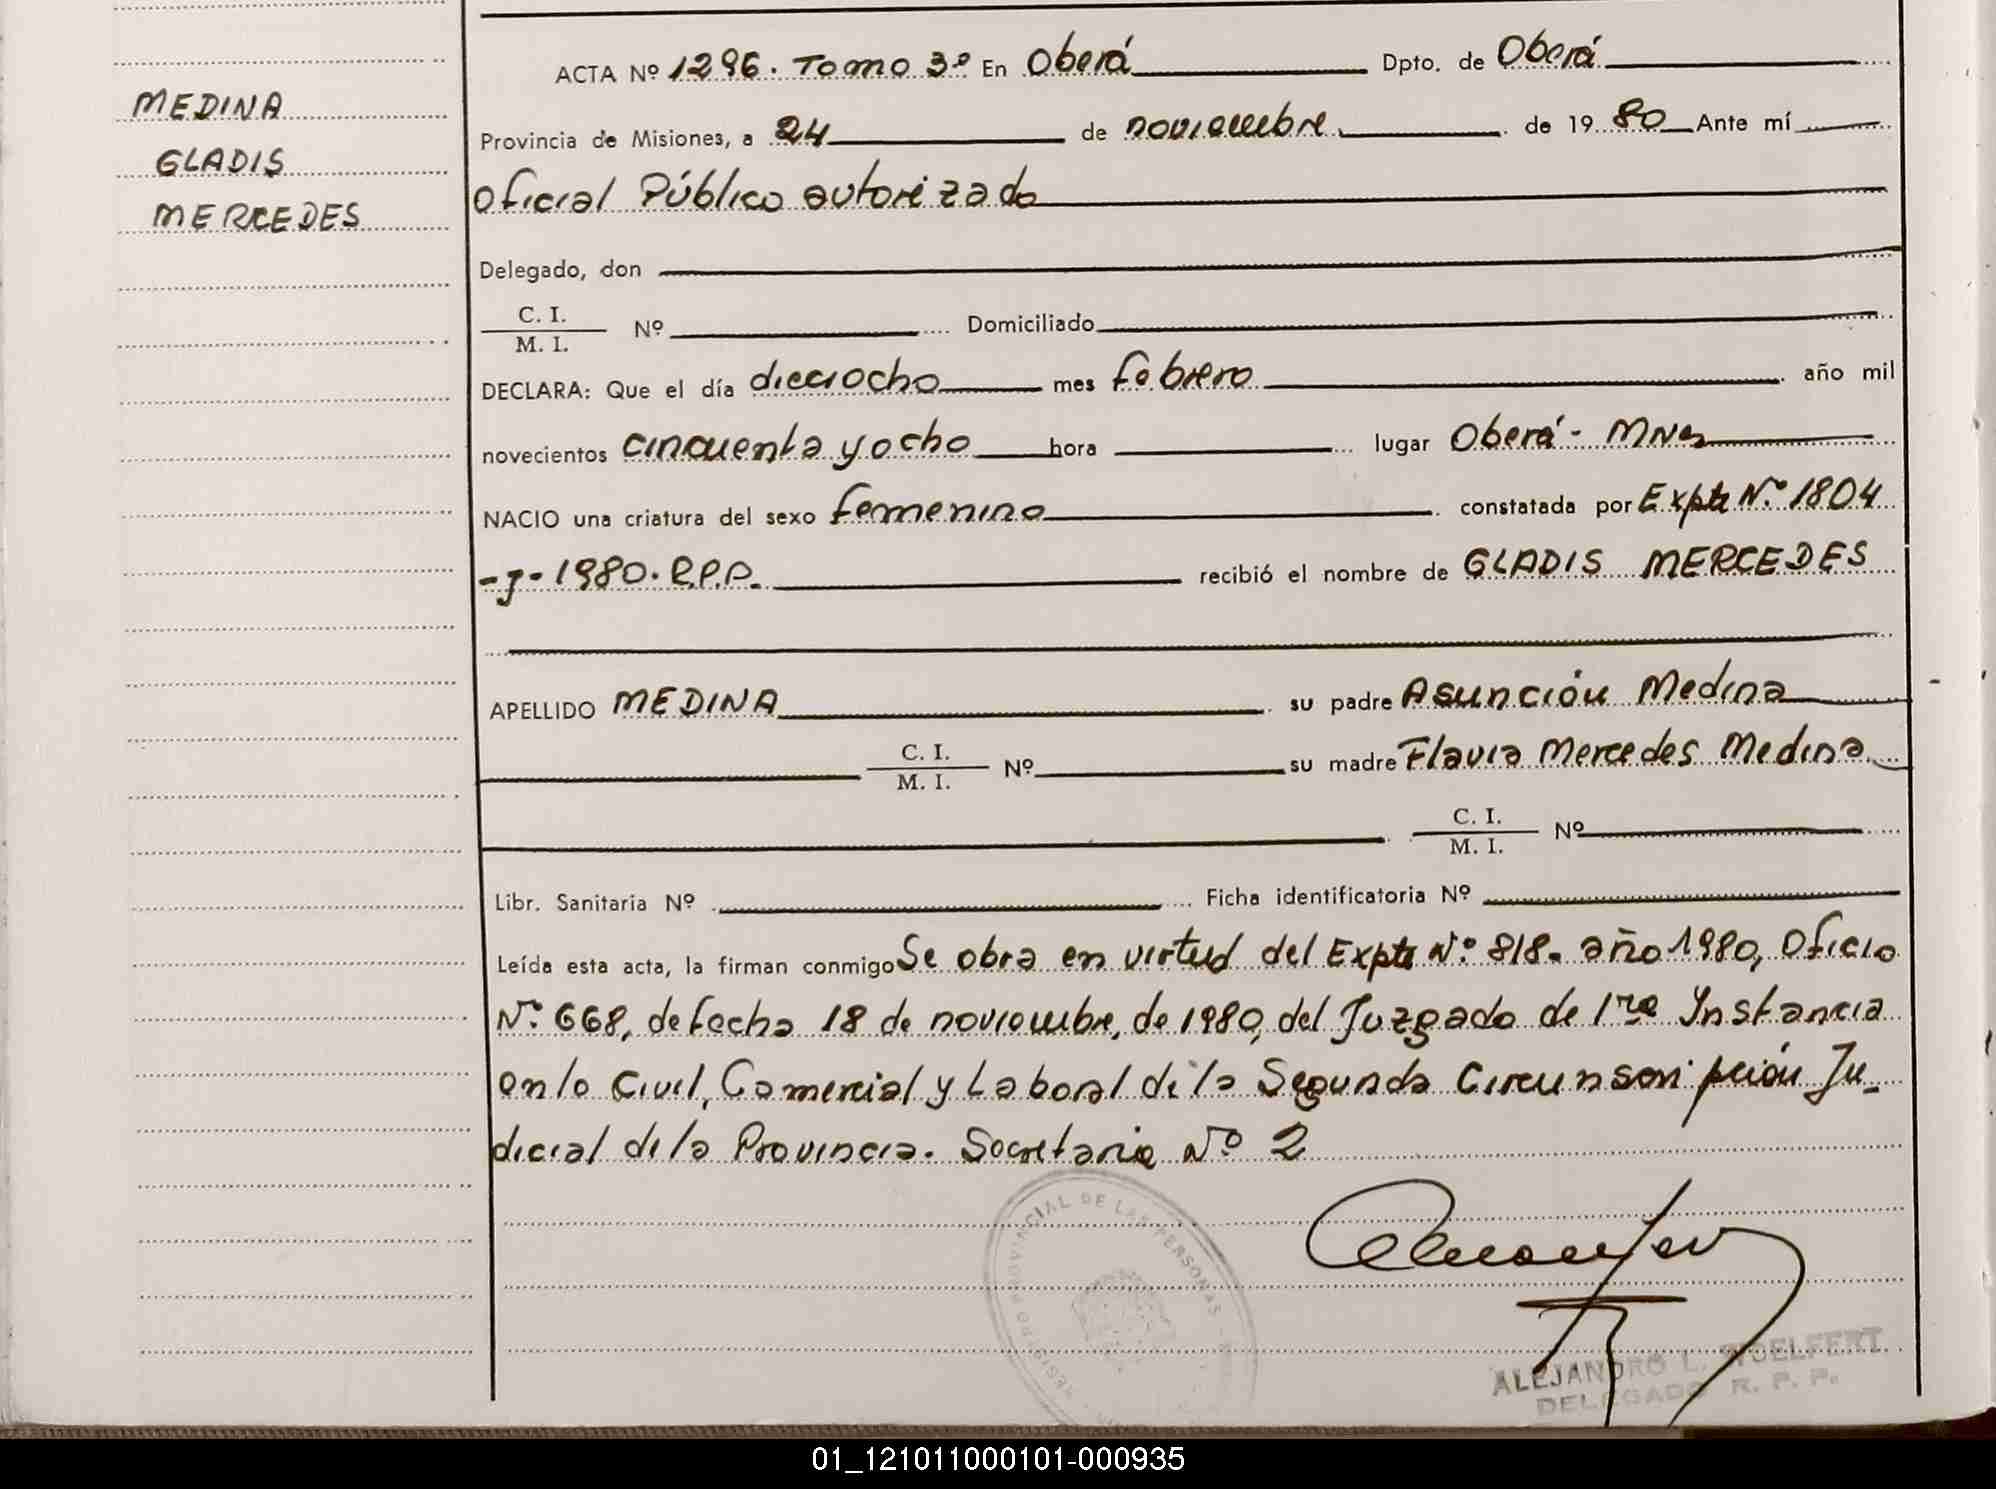 MEDINA
GLADIS
MERCEDES
ACTA Nº 1296. Tomo 3º En Oberá Dpto. de Oberá
Provincia de Misiones, a 24 de noviembre de 1980 Ante mí
Oficial Público autorizado
Delegado, don
C. I.
M. I. Nº Domiciliado
DECLARA: Que el día dieciocho mes febrero año mil
novecientos cincuenta y ocho hora lugar Oberá - Mnes
NACIO una criatura del sexo femenino constatada por Expte Nº 1804
-J- 1980. R.P.P. recibió el nombre de GLADIS MERCEDES
APELLIDO MEDINA su padre Asunción Medina
C. I.
M. I. Nº su madre Flavia Mercedes Medina
C. I.
M. I. Nº
Libr. Sanitaria Nº Ficha identificatoria Nº
Leída esta acta, la firman conmigo Se obra en virtud del Expte Nº 818. año 1980, Oficio
Nº 668, de fecha 18 de noviembre, de 1980, del Juzgado de 1ra Instancia
en lo Civil, Comercial y Laboral de la Segunda Circunscripción Ju-
dicial de la Provincia. Secretaria Nº 2
REGISTRO PROVINCIAL DE LAS PERSONAS
ALEJANDRO L. WOELFERT
DELEGADO R. P. P.
01_121011000101-000935